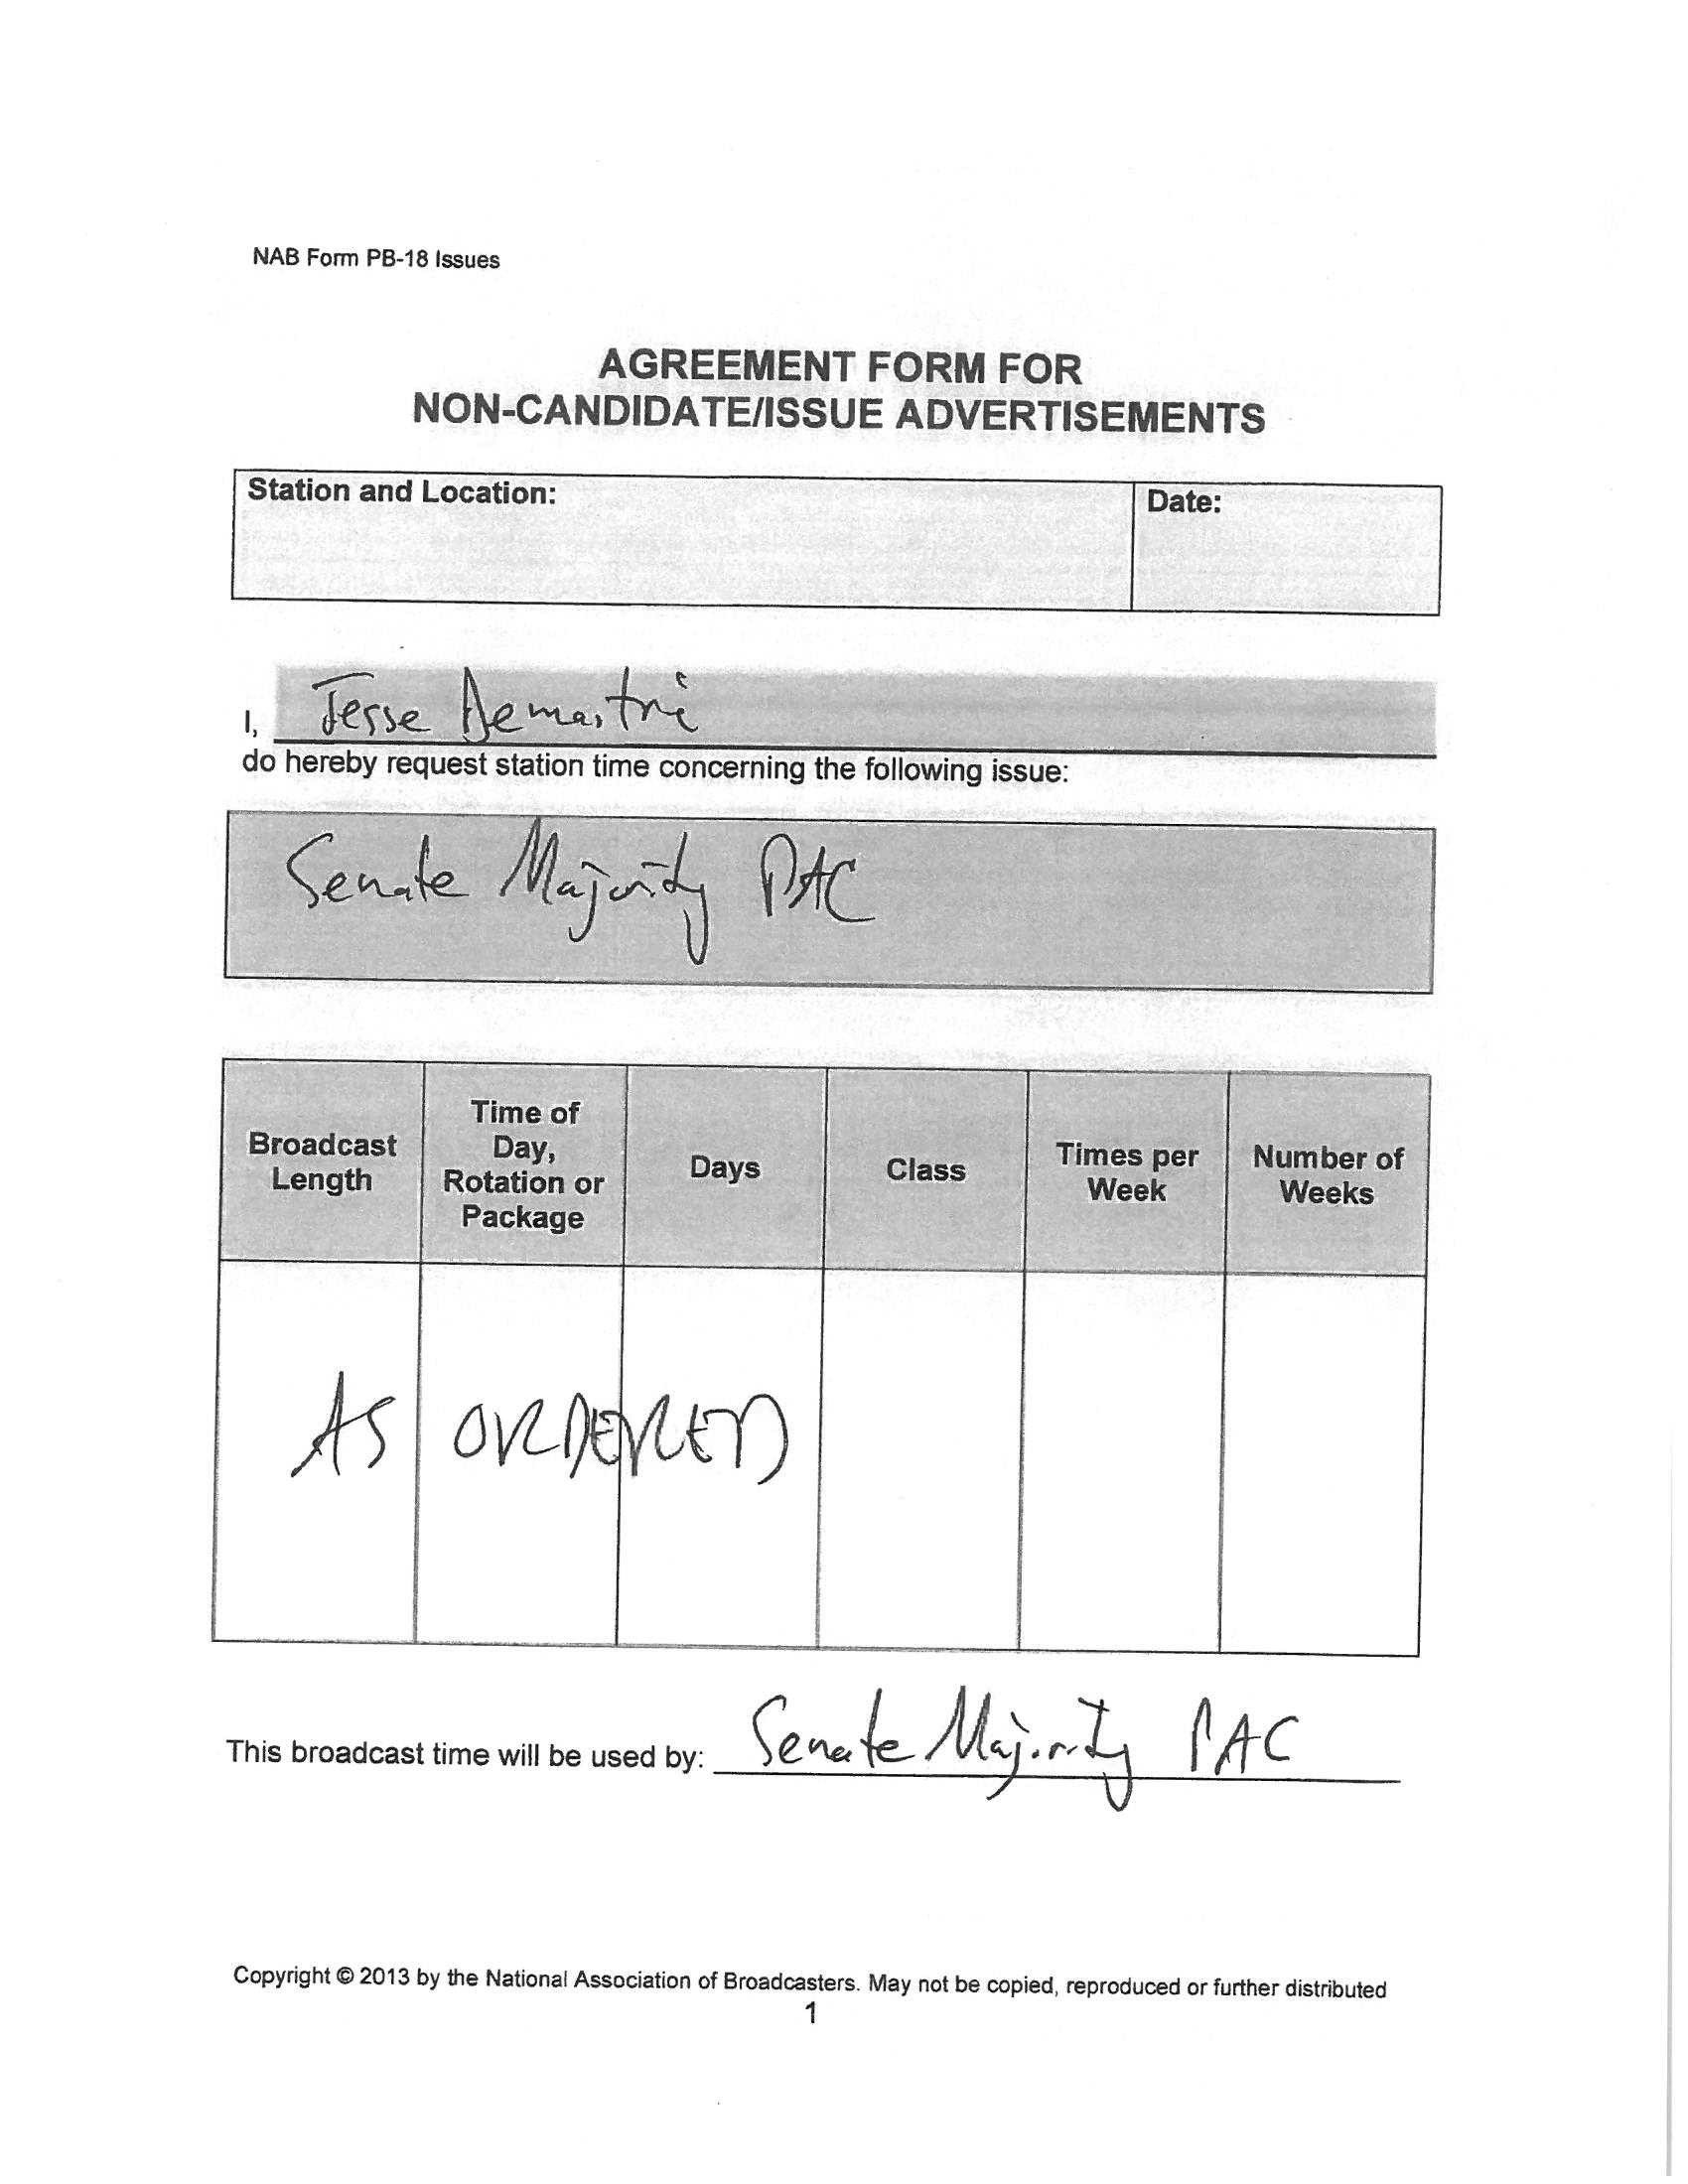 NAB Form PB-18 Issues
AGREEMENT FORM FOR
NON-CANDIDATE/ISSUE ADVERTISEMENTS
Station and Location:
Date:
I, Jesse Demastri
do hereby request station time concerning the following issue:
Senate Majority PAC
Broadcast Length
Time of Day, Rotation or Package
Days
Class
Times per Week
Number of Weeks
AS ORDERED
This broadcast time will be used by: Senate Majority PAC
Copyright © 2013 by the National Association of Broadcasters. May not be copied, reproduced or further distributed
1